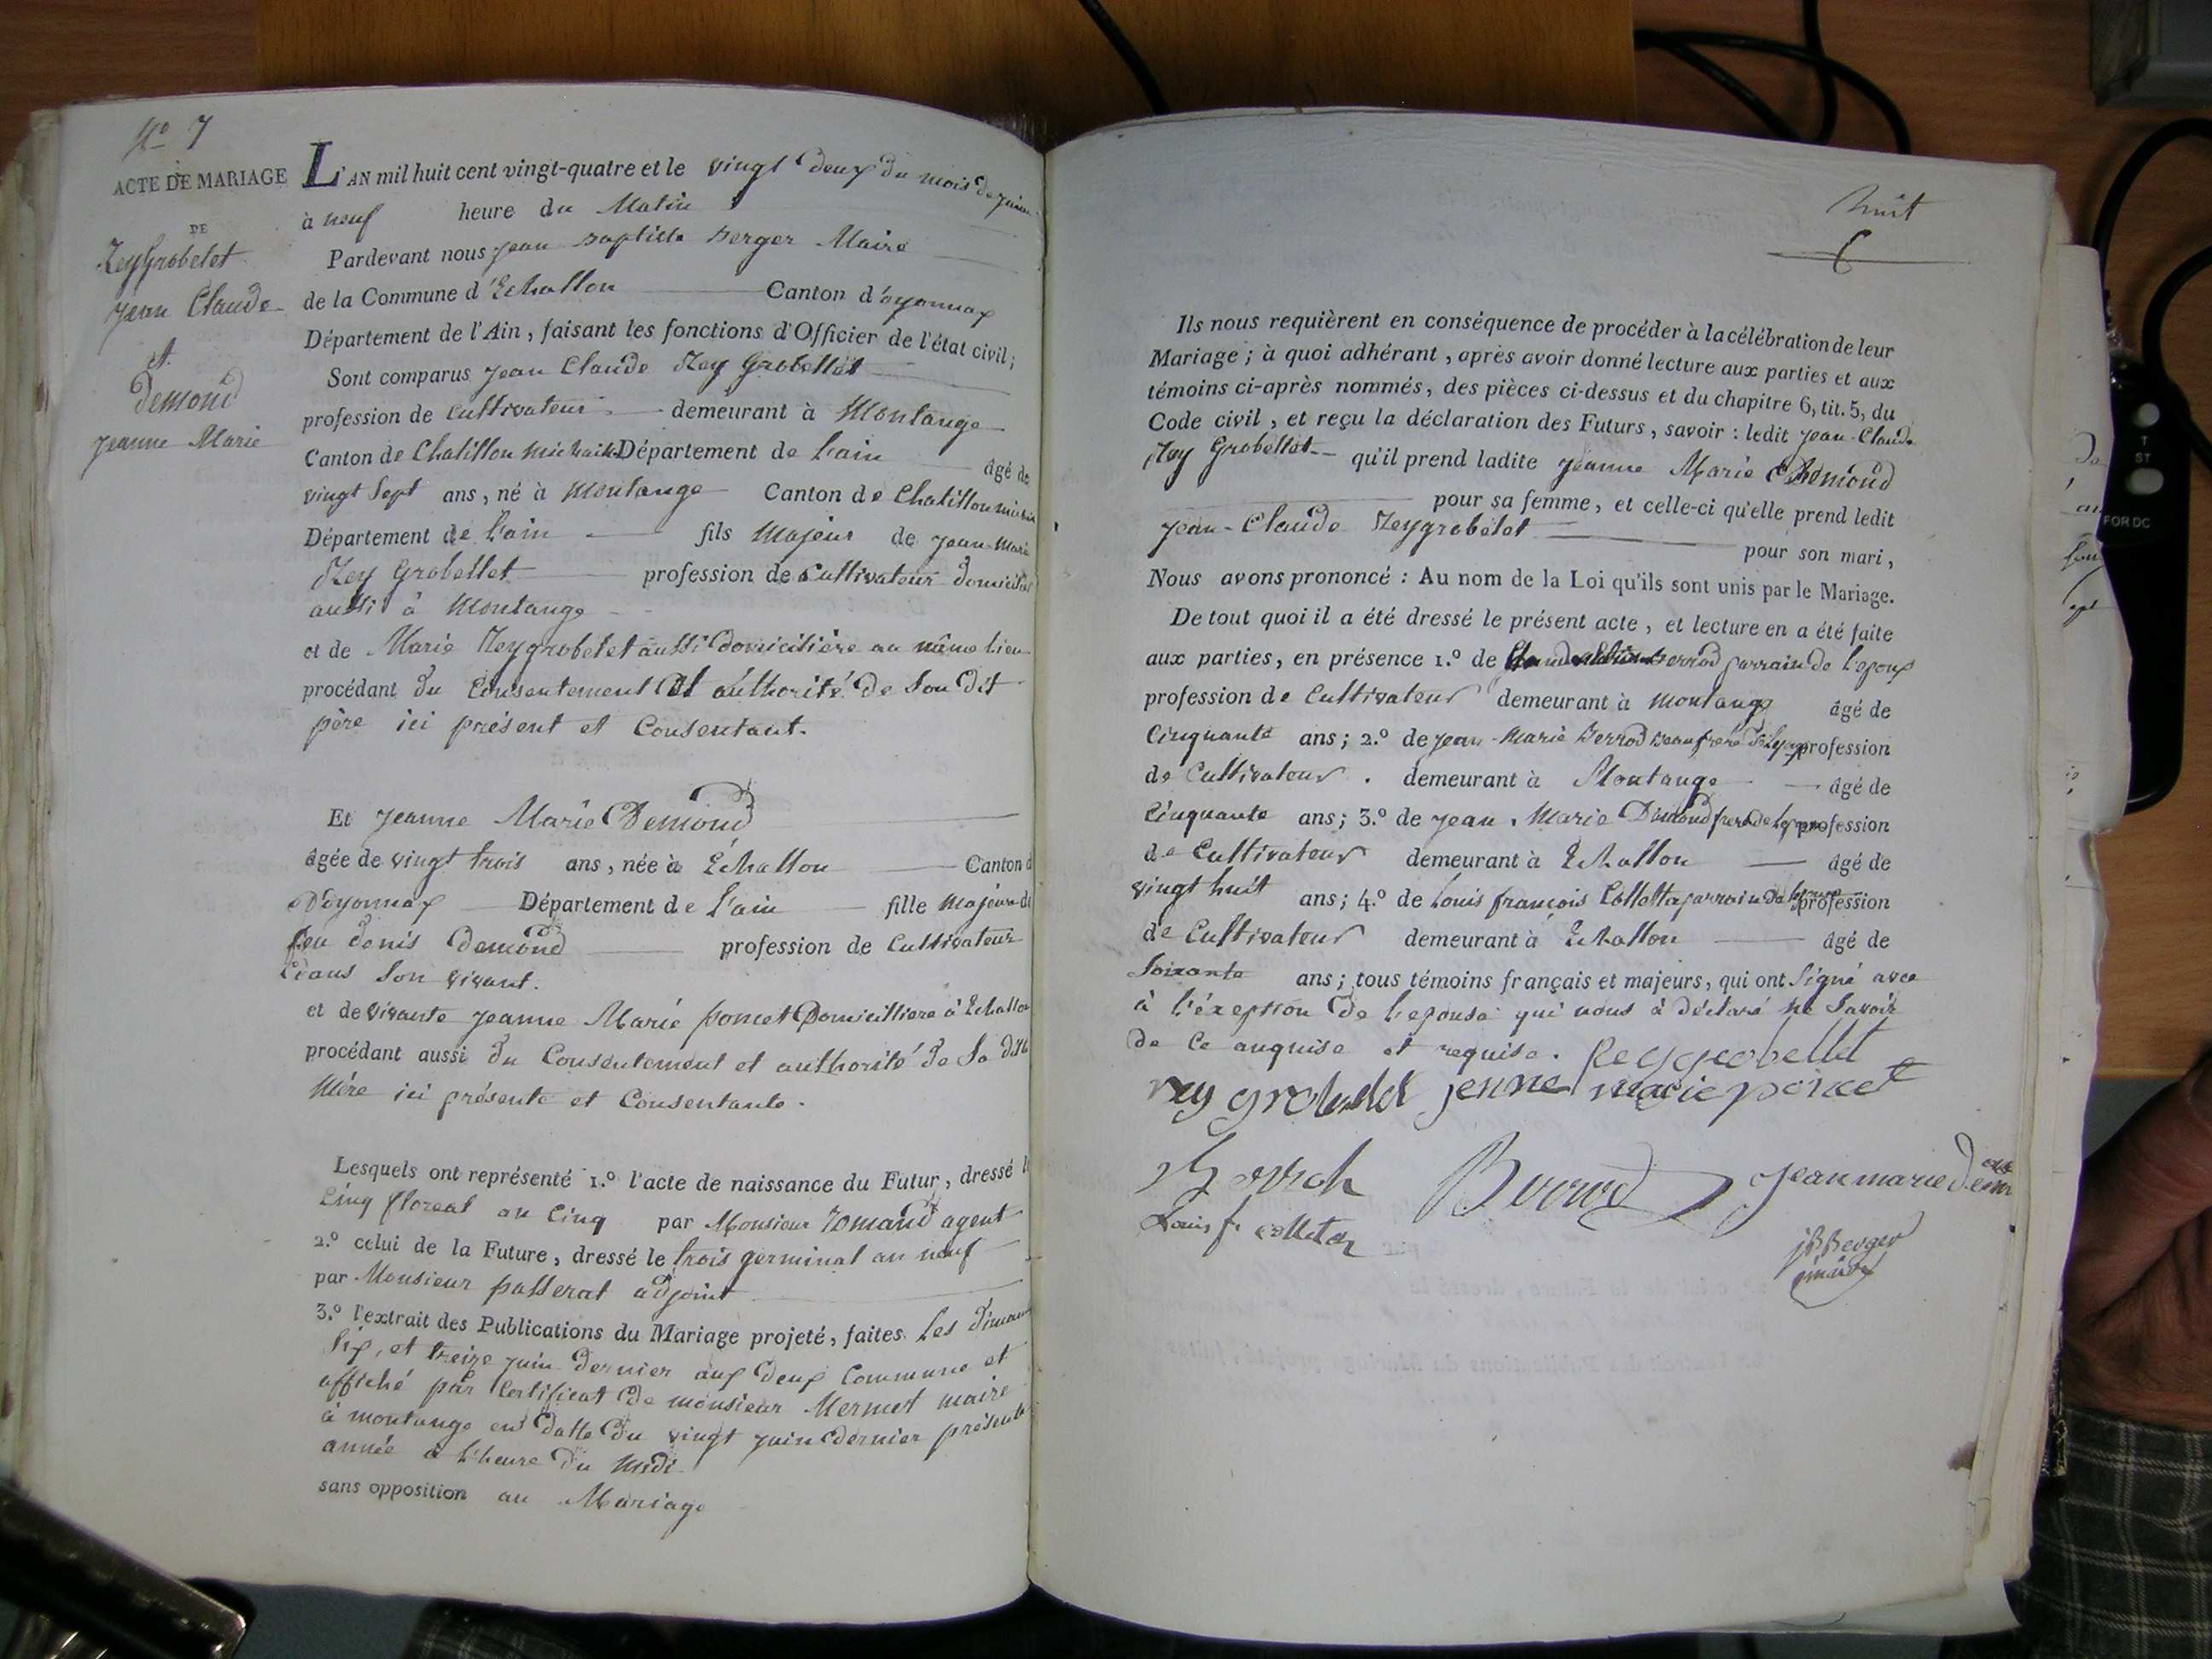 No 7
ACTE DE MARIAGE
DE
Reygrobelet
jean Claude
et
Demond
jeanne Marie
L'AN mil huit cent vingt-quatre et le vingt deux du mois de juin
à neuf heure du Matin
Pardevant nous jean baptiste Berger Maire
de la Commune d'Echallon Canton d'oyonnax
Département de l'Ain, faisant les fonctions d'Officier de l'état civil;
Sont comparus jean Claude Rey Grobellet
profession de cultivateur demeurant à Montange
Canton de Chatillon michaille Département de l'ain âgé de
vingt sept ans, né à montange Canton de Chatillon
Département de l'ain fils majeur de jean-marie
Rey Grobellet profession de cultivateur domicilié
aussi à montange
et de Marie Reygrobelet aussi domicilière au même lieu
procédant du Consentement et authorité de Son dit
père ici présent et Consentant.
Et jeanne Marie Demond
âgée de vingt trois ans, née à Echallon Canton d
D'oyonnax Département de l'ain fille majeure de
feu denis Demond profession de Cultivateur
dans Son vivant.
et de vivante jeanne Marie poncet Domicilliere à Echallon
procédant aussi du Consentement et authorité de Sa dite
Mère ici présente et Consentante.
Lesquels ont représenté 1.º l'acte de naissance du Futur, dressé le
Cinq floreal an Cinq par Monsieur agent
2.º celui de la Future, dressé le trois germinal an neuf
par Monsieur passerat adjoint
3.º l'extrait des Publications du Mariage projeté, faites Les
Six, et treize juin dernier aux deux Commune et
affiché par Certificat de monsieur Mermet maire
à montange en datte du vingt juin dernier présente
année à l'heure du midi
sans opposition au Mariage
huit
Ils nous requièrent en conséquence de procéder à la célébration de leur
Mariage; à quoi adhérant, après avoir donné lecture aux parties et aux
témoins ci-après nommés, des pièces ci-dessus et du chapitre 6, tit. 5, du
Code civil, et reçu la déclaration des Futurs, savoir: ledit jean-Claude
Rey Grobellet qu'il prend ladite jeanne Marie Demond
pour sa femme, et celle-ci qu'elle prend ledit
jean-Claude Reygrobelet
pour son mari,
Nous avons prononcé: Au nom de la Loi qu'ils sont unis par le Mariage.
De tout quoi il a été dressé le présent acte, et lecture en a été faite
aux parties, en présence 1.º de parrain de l'epoux
profession de Cultivateur demeurant à montange âgé de
Cinquante ans; 2.º de jean-Marie Berrod beaufrère profession
de Cultivateur. demeurant à Montange âgé de
Cinquante ans; 3.º de jean. Marie Demond frere de profession
de Cultivateur demeurant à Echallon âgé de
vingt huit ans; 4.º de Louis françois Colletta parrain de profession
de Cultivateur demeurant à Echallon âgé de
Soixante ans; tous témoins français et majeurs, qui ont Signé avec
à l'éxeption de l'epouse qui nous à déclaré ne Savoir
de Ce anquise et requise. Reygrobellet
rey grobellet jenne marie poncet
Berrod jean marie
Louis f. colleta
jB Berger
maire
FOR DC
T
ST